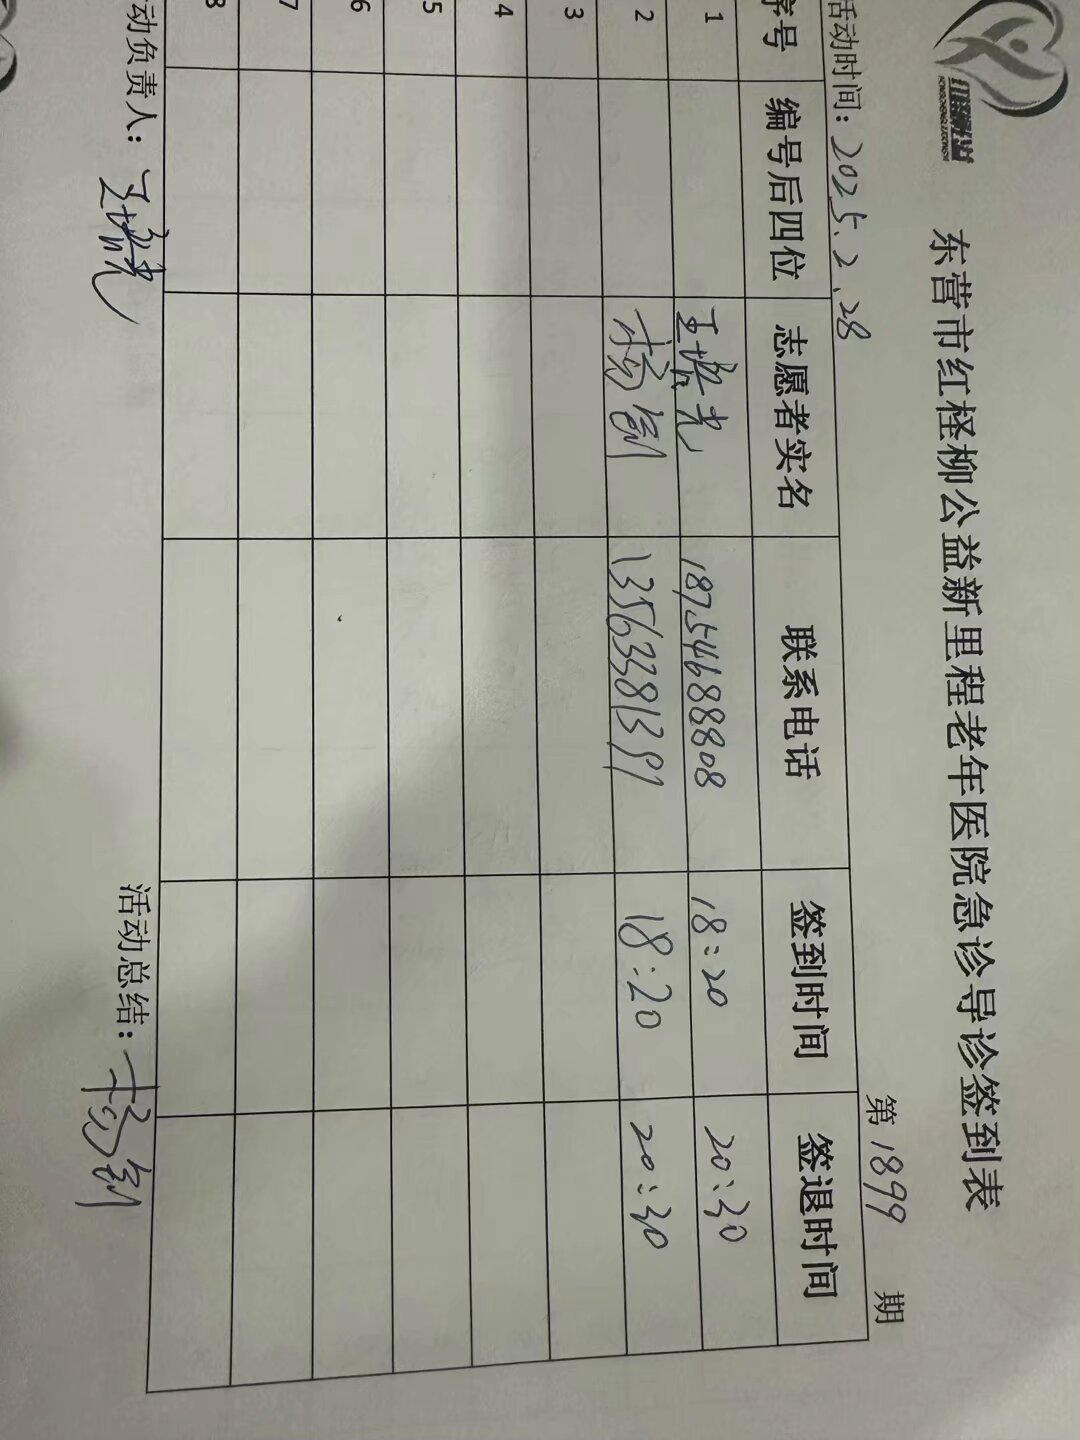 东营市红柽柳公益新里程老年医院急诊导诊签到表
活动时间：2025.2.28 第1899期
序号 编号后四位 志愿者实名 联系电话 签到时间 签退时间
1 王光 18754688808 18:20 20:30
2 杨剑 13563381391 18:20 20:30
3
4
5
6
7
8
动负责人： 王光 活动总结：杨剑